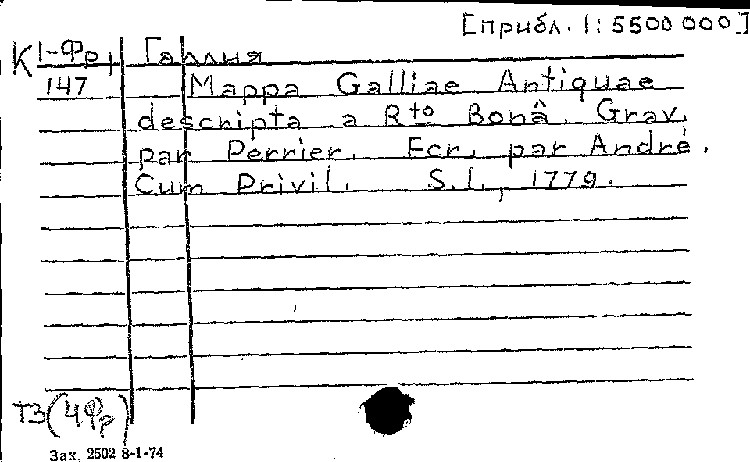 [прибл. 1:5500 000.]
К 1-Фр, Галлия
147 Mappa Galliae Antiquae
descripta a Rto Bonâ. Grav.
par Perrier. Ecr. par André.
Cum Privil. S.l., 1779.
ТЗ (4Фр)
Зак. 2502 8-1-74